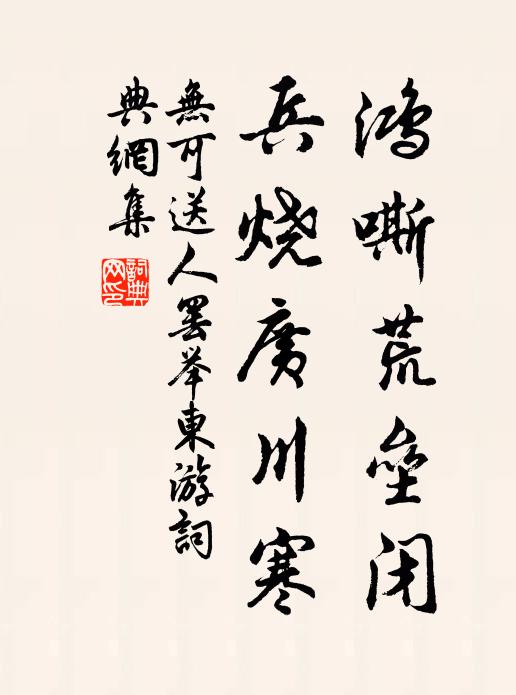 鸿嘶荒垒闭
兵烧广川寒
無可送人罢举東游詞
典網集
詞典网印